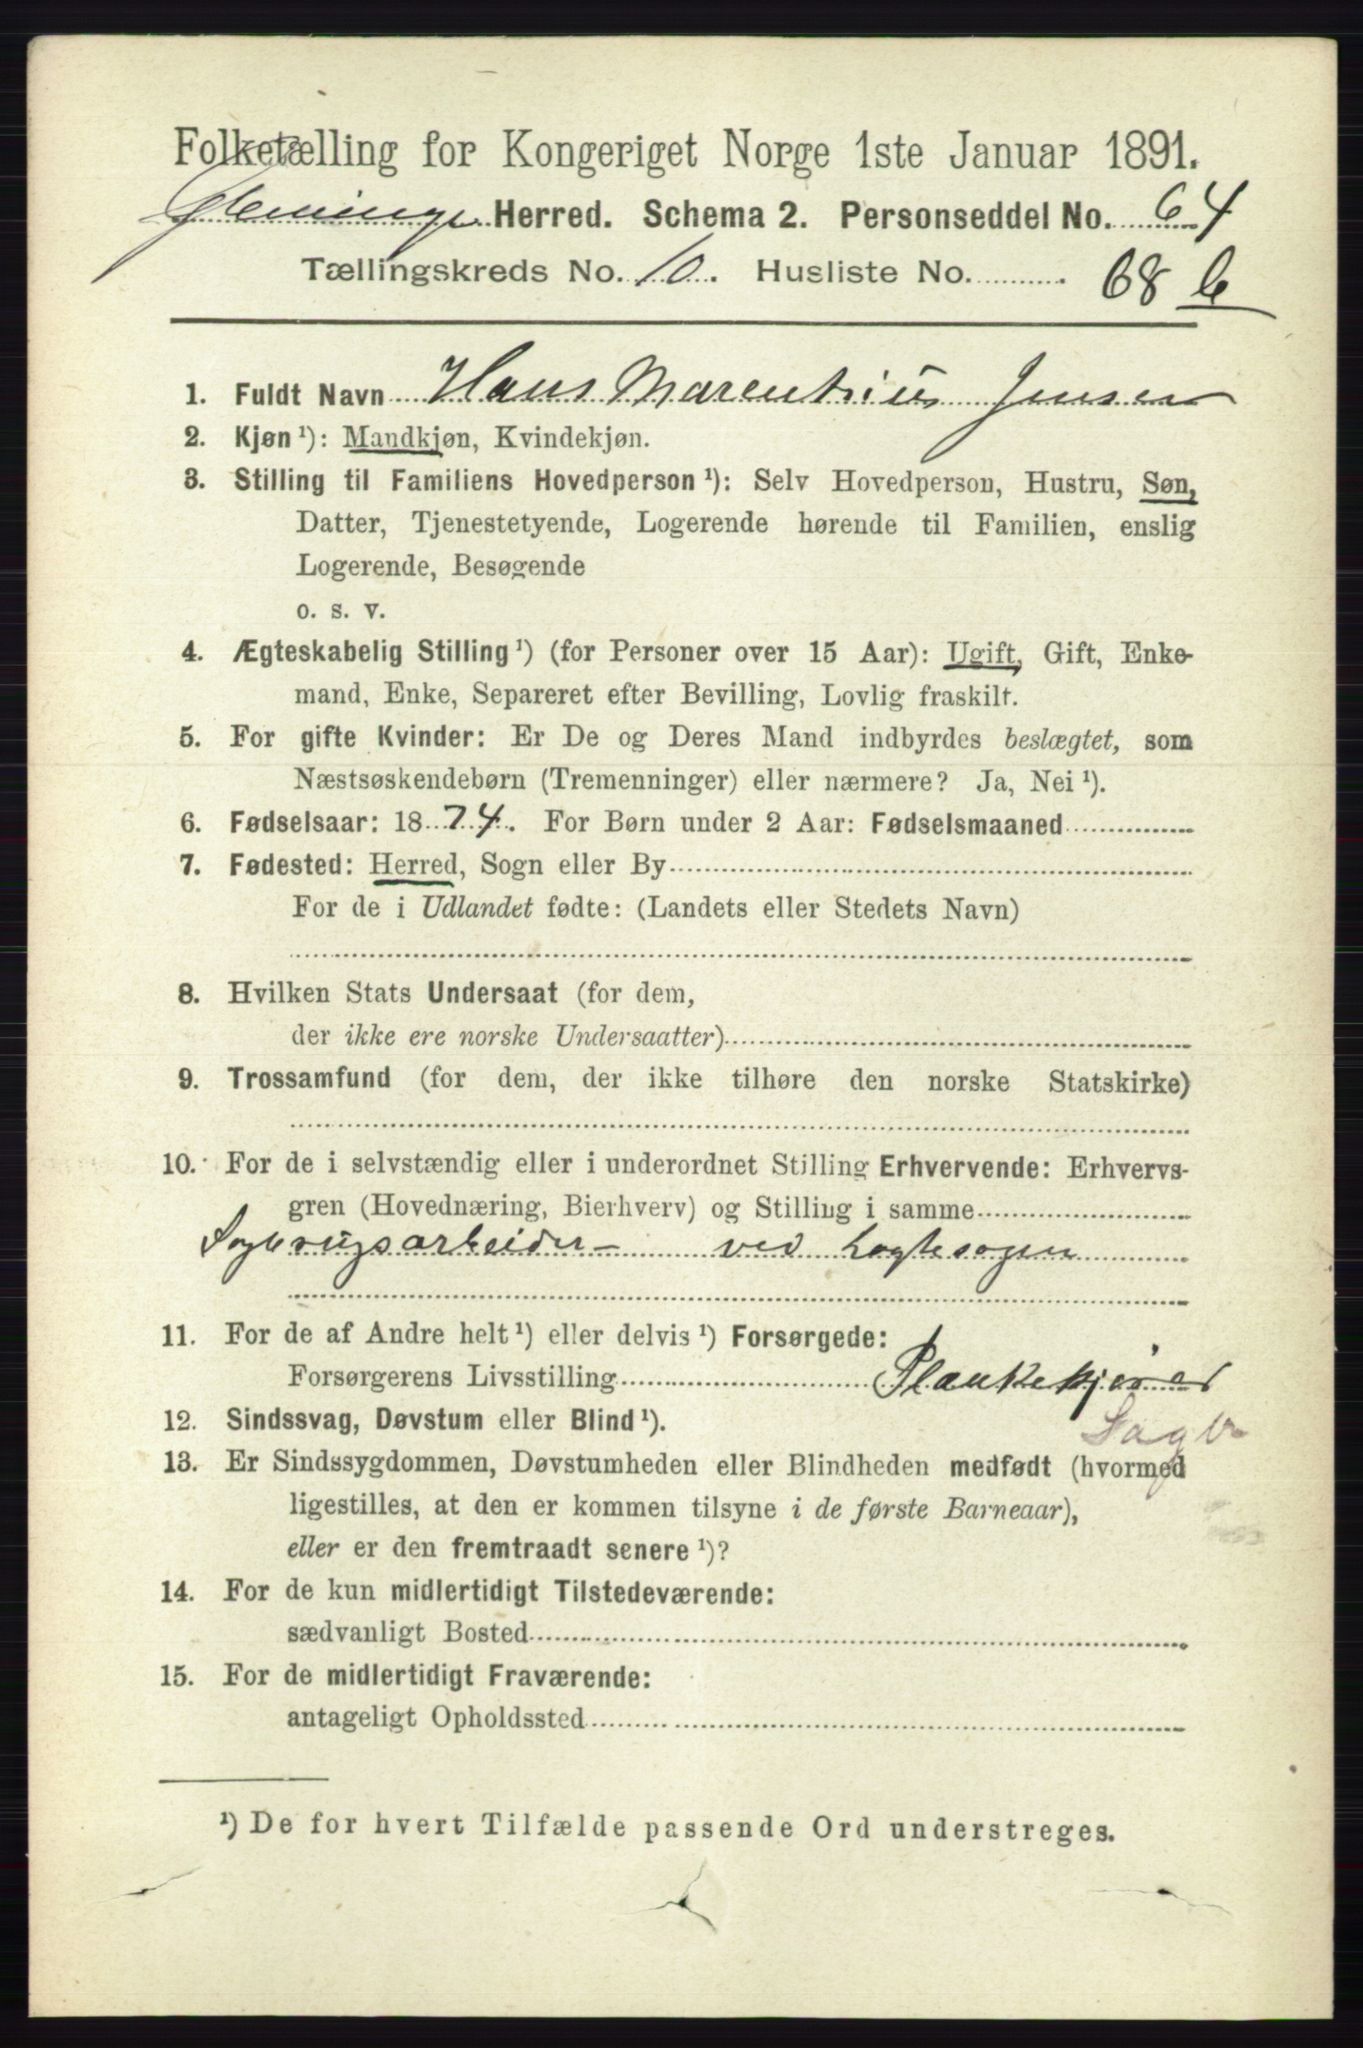 Folketælling for Kongeriget Norge 1ste Januar 1891.
Glemminge Herred. Schema 2. Personseddel No. 64
Tællingskreds No. 10. Husliste No. 68 b
1. Fuldt Navn Hans Marentius Jensen
2. Kjøn¹): Mandkjøn, Kvindekjøn.
3. Stilling til Familiens Hovedperson¹): Selv Hovedperson, Hustru, Søn,
Datter, Tjenestetyende, Logerende hørende til Familien, enslig
Logerende, Besøgende
o. s. v.
4. Ægteskabelig Stilling¹) (for Personer over 15 Aar): Ugift, Gift, Enke-
mand, Enke, Separeret efter Bevilling, Lovlig fraskilt.
5. For gifte Kvinder: Er De og Deres Mand indbyrdes beslægtet, som
Næstsøskendebørn (Tremenninger) eller nærmere? Ja, Nei¹).
6. Fødselsaar: 1874. For Børn under 2 Aar: Fødselsmaaned
7. Fødested: Herred, Sogn eller By
For de i Udlandet fødte: (Landets eller Stedets Navn)
8. Hvilken Stats Undersaat (for dem,
der ikke ere norske Undersaatter)
9. Trossamfund (for dem, der ikke tilhøre den norske Statskirke)
10. For de i selvstændig eller i underordnet Stilling Erhvervende: Erhvervs-
gren (Hovednæring, Bierhverv) og Stilling i samme
Sagbrugsarbeider ved Lagtesagen
11. For de af Andre helt¹) eller delvis¹) Forsørgede:
Forsørgerens Livsstilling Plankekjører
12. Sindssvag, Døvstum eller Blind¹). Sagbr
13. Er Sindssygdommen, Døvstumheden eller Blindheden medfødt (hvormed
ligestilles, at den er kommen tilsyne i de første Barneaar),
eller er den fremtraadt senere¹)?
14. For de kun midlertidigt Tilstedeværende:
sædvanligt Bosted
15. For de midlertidigt Fraværende:
antageligt Opholdssted
¹) De for hvert Tilfælde passende Ord understreges.